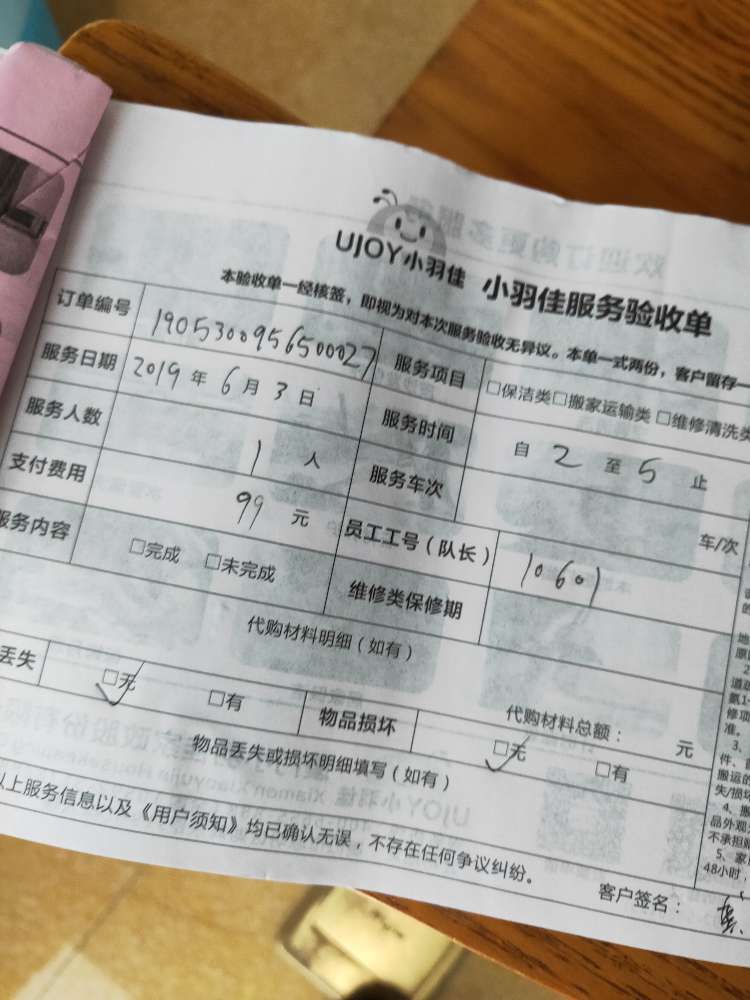 UJOY小羽佳 小羽佳服务验收单
本验收单一经核签，即视为对本次服务验收无异议。本单一式两份，客户留存一
订单编号 1905300956500027 服务项目 □保洁类□搬家运输类 □维修清洗类
服务日期 2019年6月3日 服务时间 自 2 至 5 止
服务人数 1 人 服务车次 车/次
支付费用 99 元 员工工号（队长） 10601
服务内容 □完成 □未完成 维修类保修期
代购材料明细（如有）
代购材料总额： 元
丢失 □无 □有 物品损坏 □无 □有
物品丢失或损坏明细填写（如有）
以上服务信息以及《用户须知》均已确认无误，不存在任何争议纠纷。
客户签名：
修项
准。
3、
件、
搬运的
失/损坏
4、搬
品外观
不承担赔
5、家
48小时，